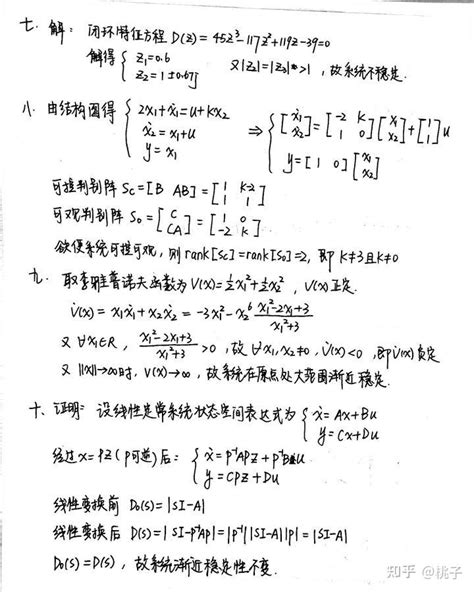 七. 解: 闭环特征方程 D(z)=45z³-117z²+119z-39=0
解得 { z₁=0.6
z₂=1±0.67j
又|z₂|=|z₃|>1, 故系统不稳定.
八. 由结构图得 { 2x₁+ẋ₁=u+kx₂
ẋ₂=x₁+u
y=x₁
⇒ { [ẋ₁ ẋ₂]=[-2 k; 1 0][x₁ x₂]+[1 1]u
y=[1 0][x₁ x₂]
可控判别阵 Sc=[B AB]=[1 k-2; 1 1]
可观判别阵 So=[C; CA]=[1 0; -2 k]
欲使系统可控可观, 则 rank[Sc]=rank[So]=2, 即 k≠3且k≠0
九. 取李雅普诺夫函数为 V(x)=½x₁²+½x₂², V(x)正定.
V̇(x)=x₁ẋ₁+x₂ẋ₂=-3x₁²-x₂⁶ (x₁²-2x₁+3)/(x₁²+3)
又 ∀x₁∈R, (x₁²-2x₁+3)/(x₁²+3)>0, 故 ∀x₁,x₂≠0, V̇(x)<0, 即V̇(x)负定
又 ||x||→∞时, V(x)→∞, 故系统在原点处大范围渐近稳定.
十. 证明: 设线性定常系统状态空间表达式为 { ẋ=Ax+Bu
y=Cx+Du
经过x=Pz (P可逆)后: { ẋ=P⁻¹APz+P⁻¹Bu
y=CPz+Du
线性变换前 D₀(s)=|SI-A|
线性变换后 D(s)=|SI-P⁻¹AP|=|P⁻¹||SI-A||P|=|SI-A|
D₀(s)=D(s), 故系统渐近稳定性不变.
知乎 @桃子